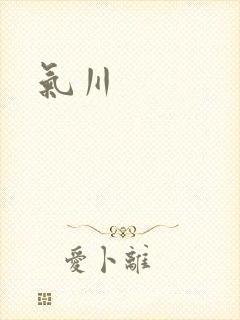 氣川
愛卜離